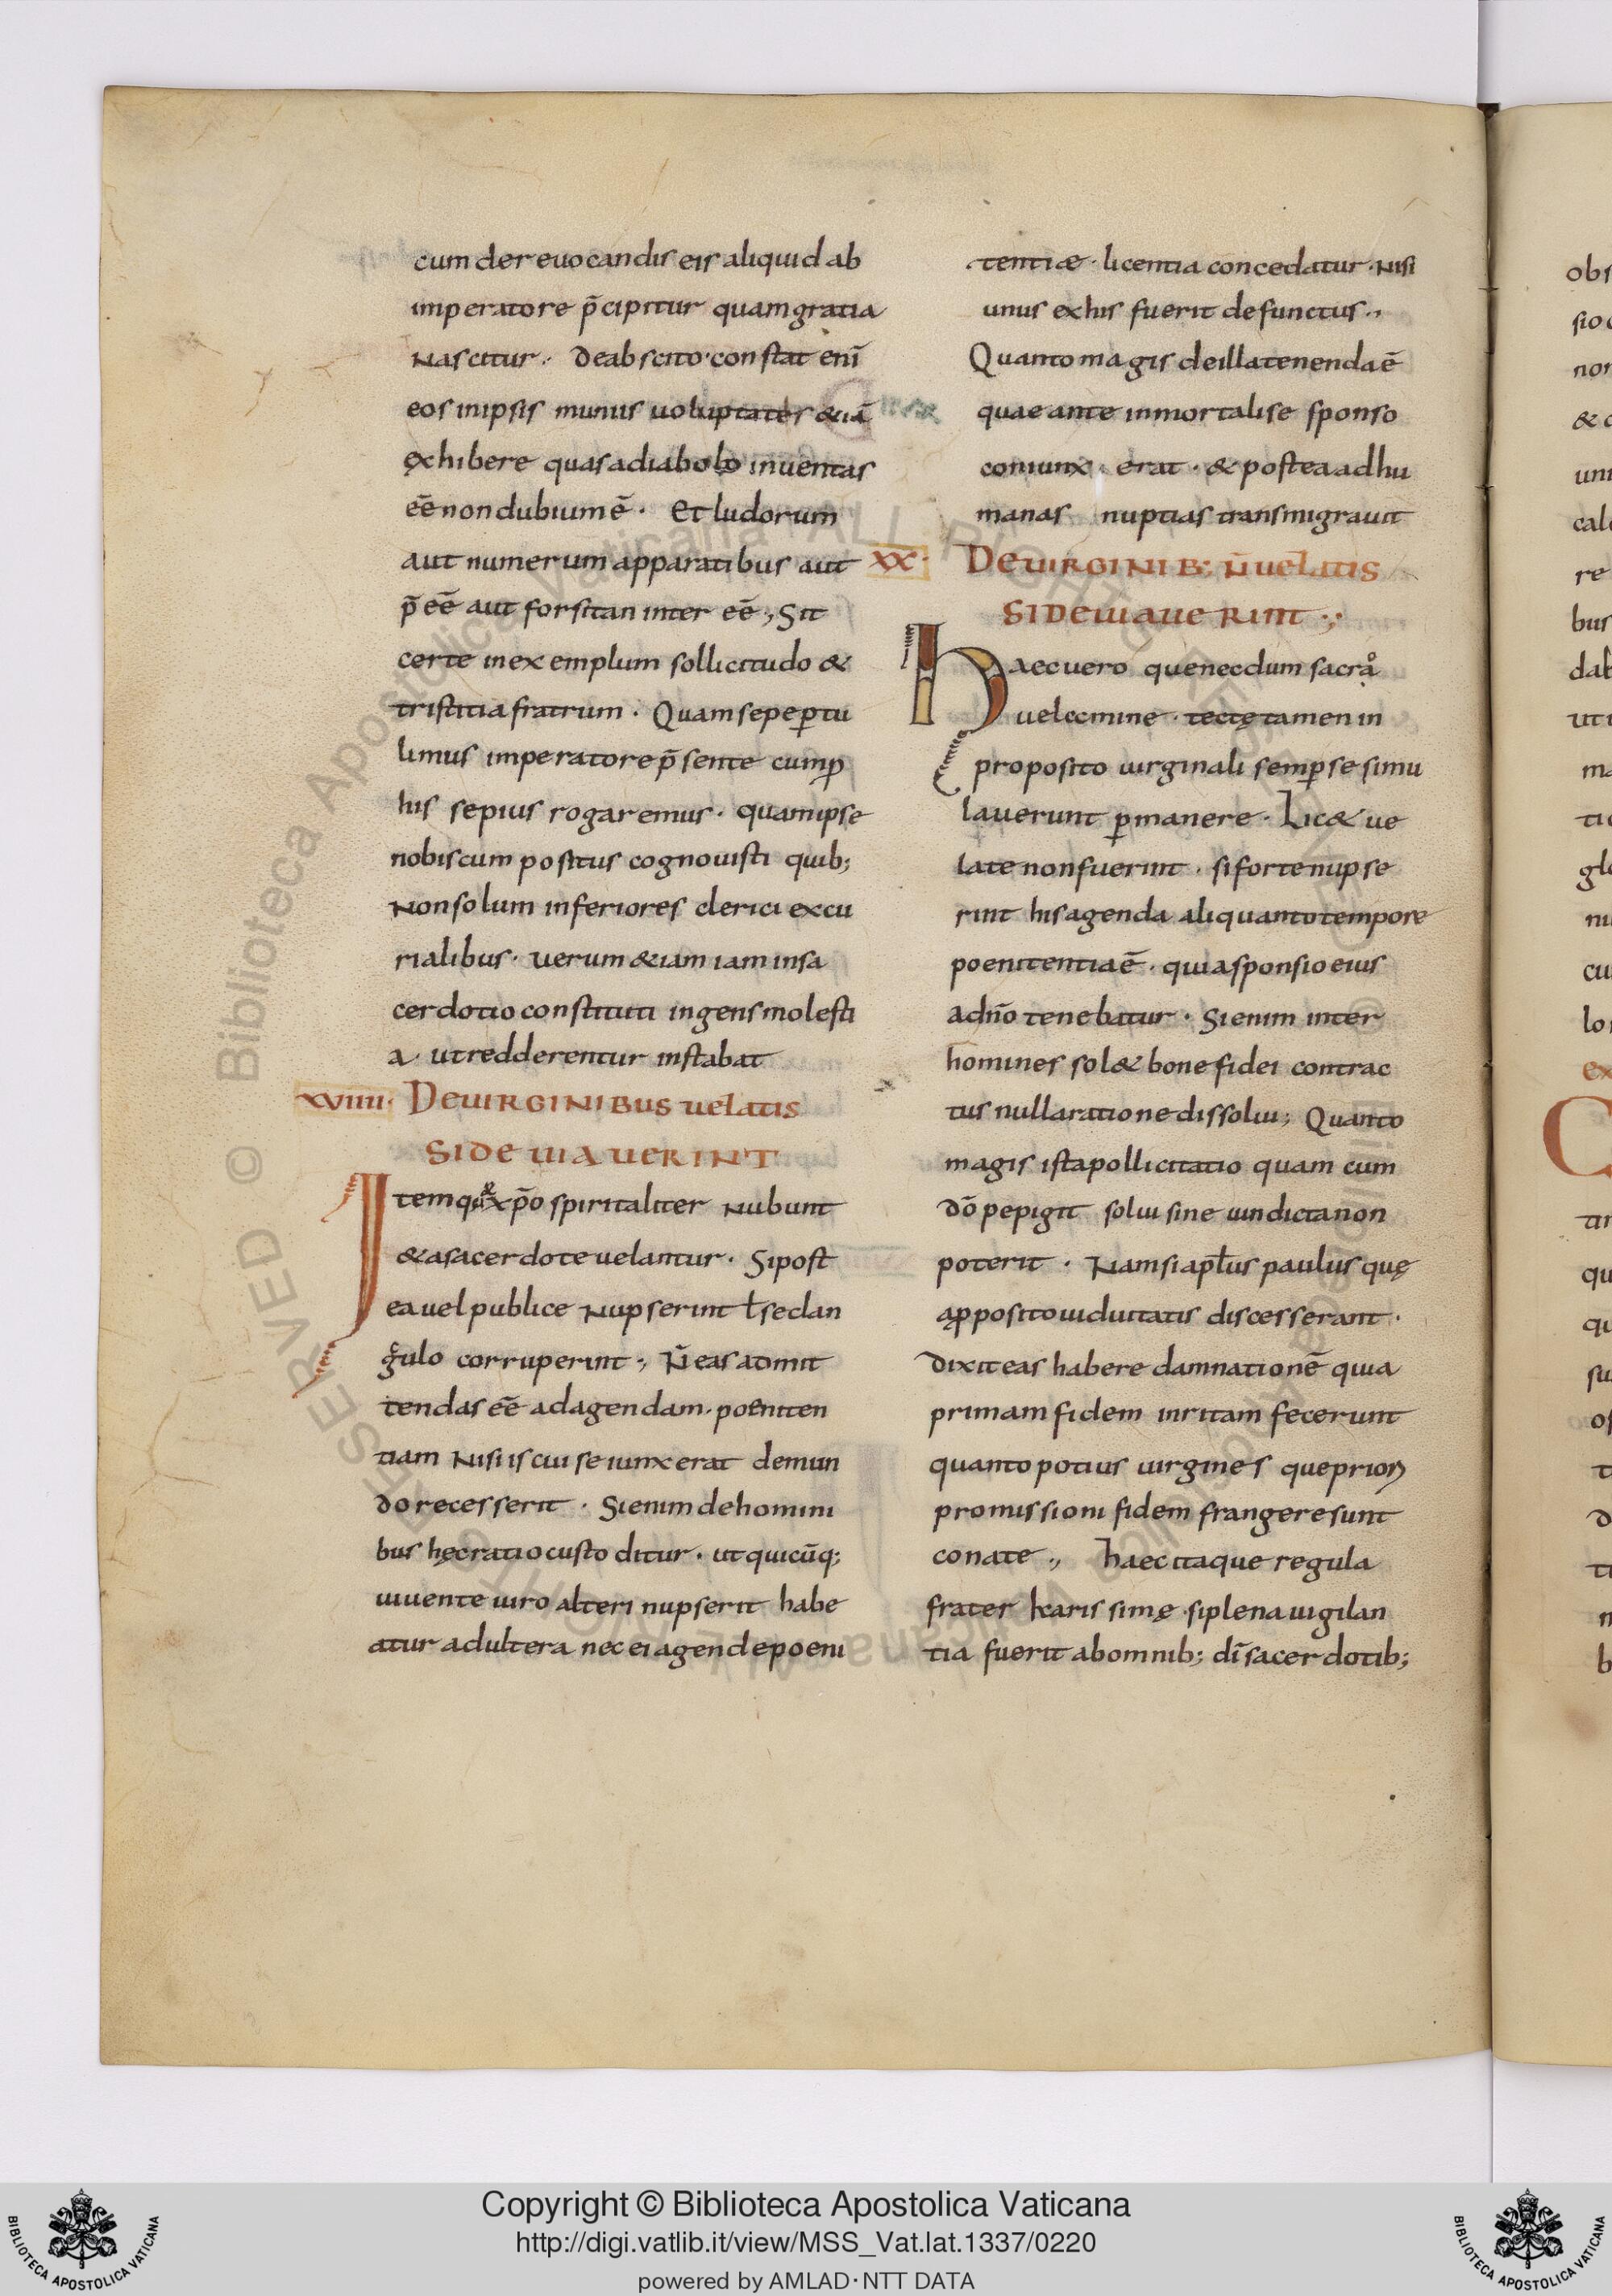 cum de reuocandis eis aliquid ab
imperatore p̄cipitur quam gratia
nascitur. de abscito· constat enī
eos in ipsis muniis uoluptates &iā
exhibere quas a diabolo inuentas
eē non dubium ē. Et ludorum
aut numerum apparatibus aut
p̄eē aut forsitan inter eē; Sit
certe in exemplum sollicitudo &
tristitia fratrum. Quam sepe ꝑtu
limus imperatore p̄sente cum ꝓ
his sepius rogaremus. quam ipse
nobiscum positus cognouisti quib;
Non solum inferiores clerici ex cu
rialibus. uerum &iam iam in sa
cerdotio constituti ingens molesti
a. ut redderentur instabat
XVIIII. DE UIRGINIBUS UELATIS
SI DEUIAUERINT
Item quę xp̄o spiritaliter nubunt
& a sacerdote uelantur. Si post
ea uel publice nupserint ł se clan
gulo corruperint; N̄ eas admit
tendas eē ad agendam. poeniten
tiam nisi is cui se iunxerat de mun
do recesserit. Si enim de homini
bus hęc ratio custoditur. ut quicūq;
uiuente uiro alteri nupserit habe
atur adultera nec ei agende poeni
tentiæ. licentia concedatur. nisi
unus ex his fuerit defunctus.,
Quanto magis de illa tenenda ē
quae ante inmortali se sponso
coniunxerat. & postea ad hu
manas nuptias transmigrauit
XX. DE UIRGINIB; N̄ UELATIS
SI DEUIAUERINT.;
Haec uero que necdum sacro
uelamine. tectę tamen in
proposito uirginali semꝑ se simu
lauerunt ꝑmanere. Lic& ue
late non fuerint. si forte nupse
rint his agenda aliquanto tempore
poenitentia ē. quia sponsio eius
a dn̄o tenebatur. Si enim inter
homines sol& bone fidei contrac
tus nulla ratione dissolui; Quanto
magis ista pollicitatio quam cum
dō pepigit solui sine uindicta non
poterit. Nam si apłus paulus quę
a ꝓposito uiduitatis discesserant.
dixit eas habere damnationē quia
primam fidem inritam fecerunt
quanto potius uirgines que prioꝝ
promissioni fidem frangere sunt
conate., haec itaque regula
frater karissimę. si plena uigilan
tia fuerit ab omnib; dī sacerdotib;
Copyright © Biblioteca Apostolica Vaticana
http://digi.vatlib.it/view/MSS_Vat.lat.1337/0220
powered by AMLAD·NTT DATA
BIBLIOTECA APOSTOLICA VATICANA
BIBLIOTECA APOSTOLICA VATICANA